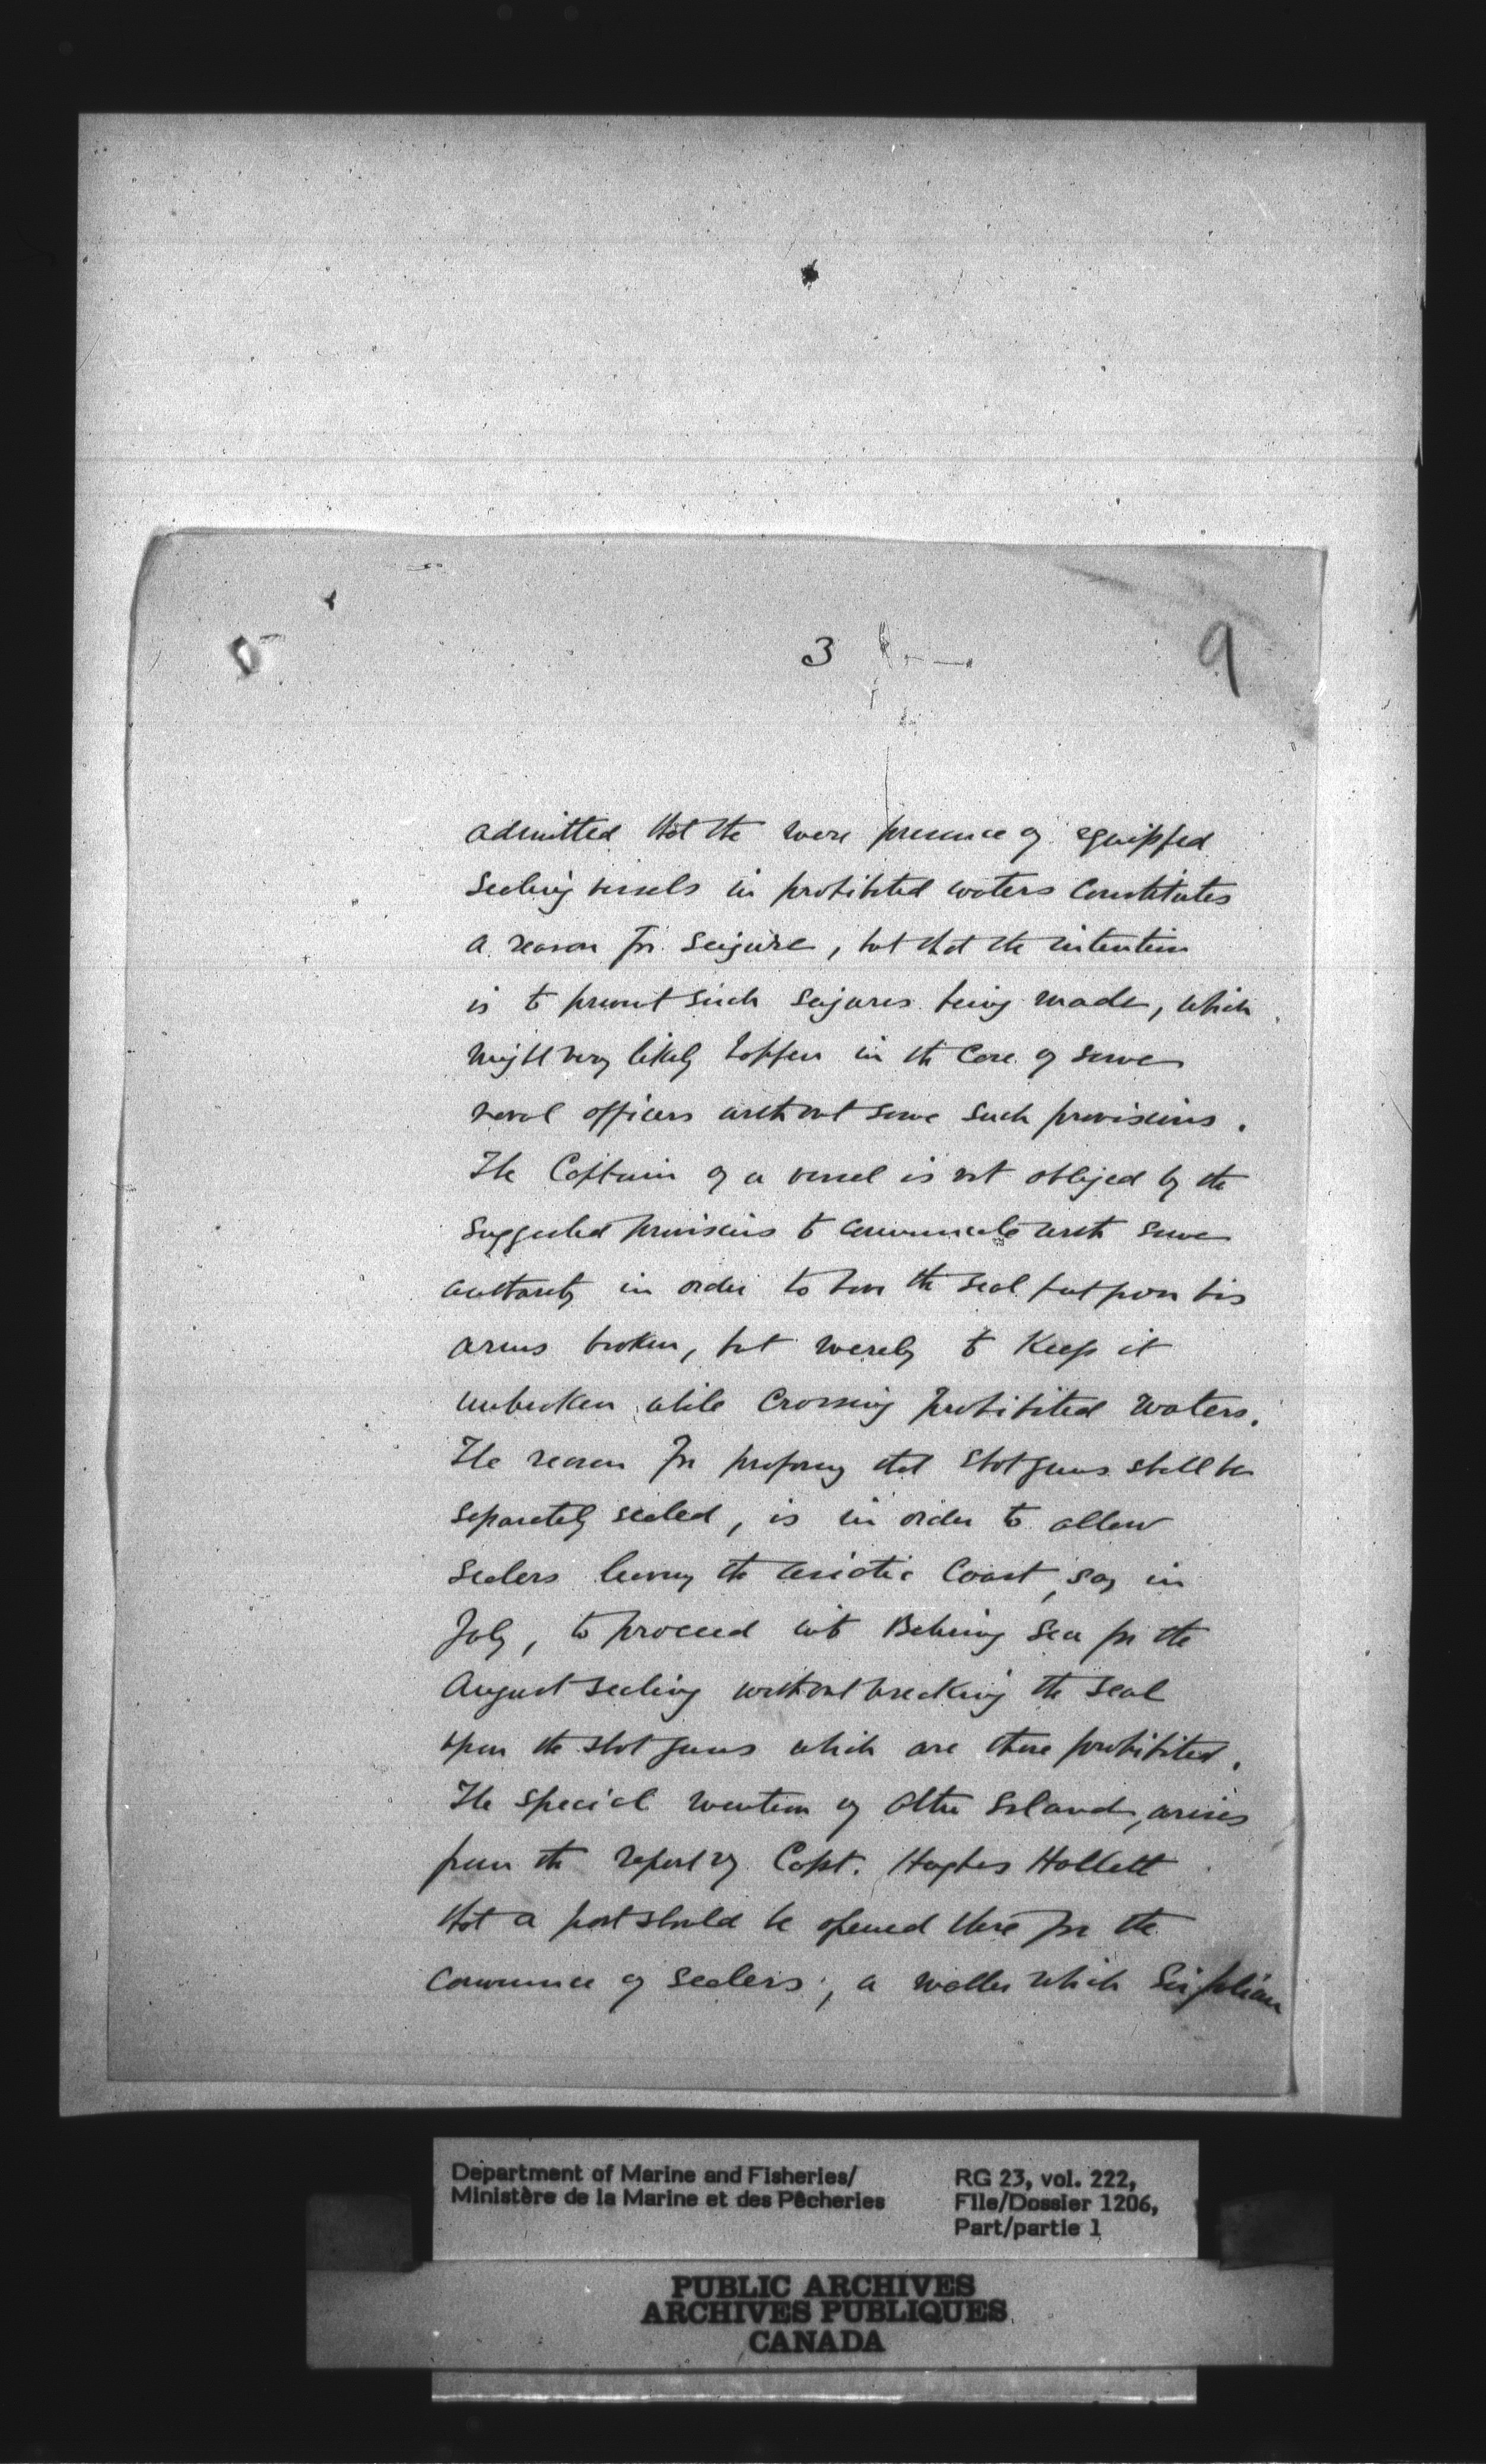 3
9
admitted that the mere presence of equipped
sealing vessels in prohibited waters constitutes
a reason for seizure, but that the intention
is to prevent such seizures being made, which
might very likely happen in the case of some
naval officers without some such provisions.
The Captain of a vessel is not obliged by the
suggested provisions to communicate with some
authority in order to have the seal put upon his
arms broken, but merely to keep it
unbroken while crossing prohibited waters.
The reason for proposing that shot guns shall be
separately sealed, is in order to allow
sealers leaving the Asiatic Coast, say in
July, to proceed into Behring Sea for the
August sealing without breaking the seal
upon the shot guns which are there prohibited.
The special mention of Attu Island, arises
from the report of Capt. Hughes Hallett
that a port should be opened there for the
convenience of sealers; a matter which Sir Julian
Department of Marine and Fisheries/
Ministère de la Marine et des Pêcheries
RG 23, vol. 222,
File/Dossier 1206,
Part/partie 1
PUBLIC ARCHIVES
ARCHIVES PUBLIQUES
CANADA